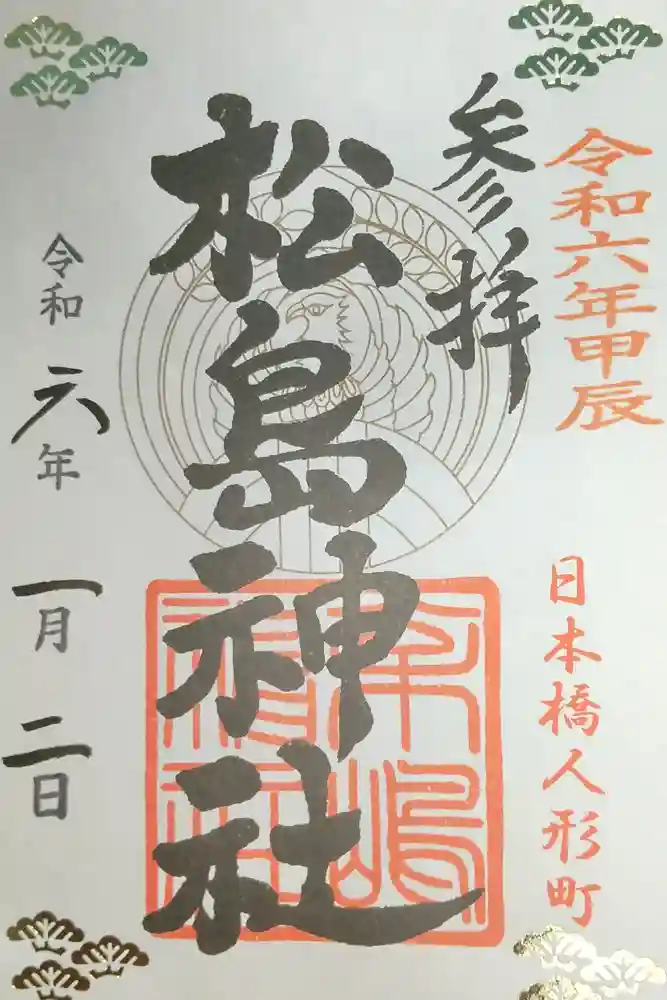 令和六年甲辰
日本橋人形町
参拝
松島神社
令和六年一月二日